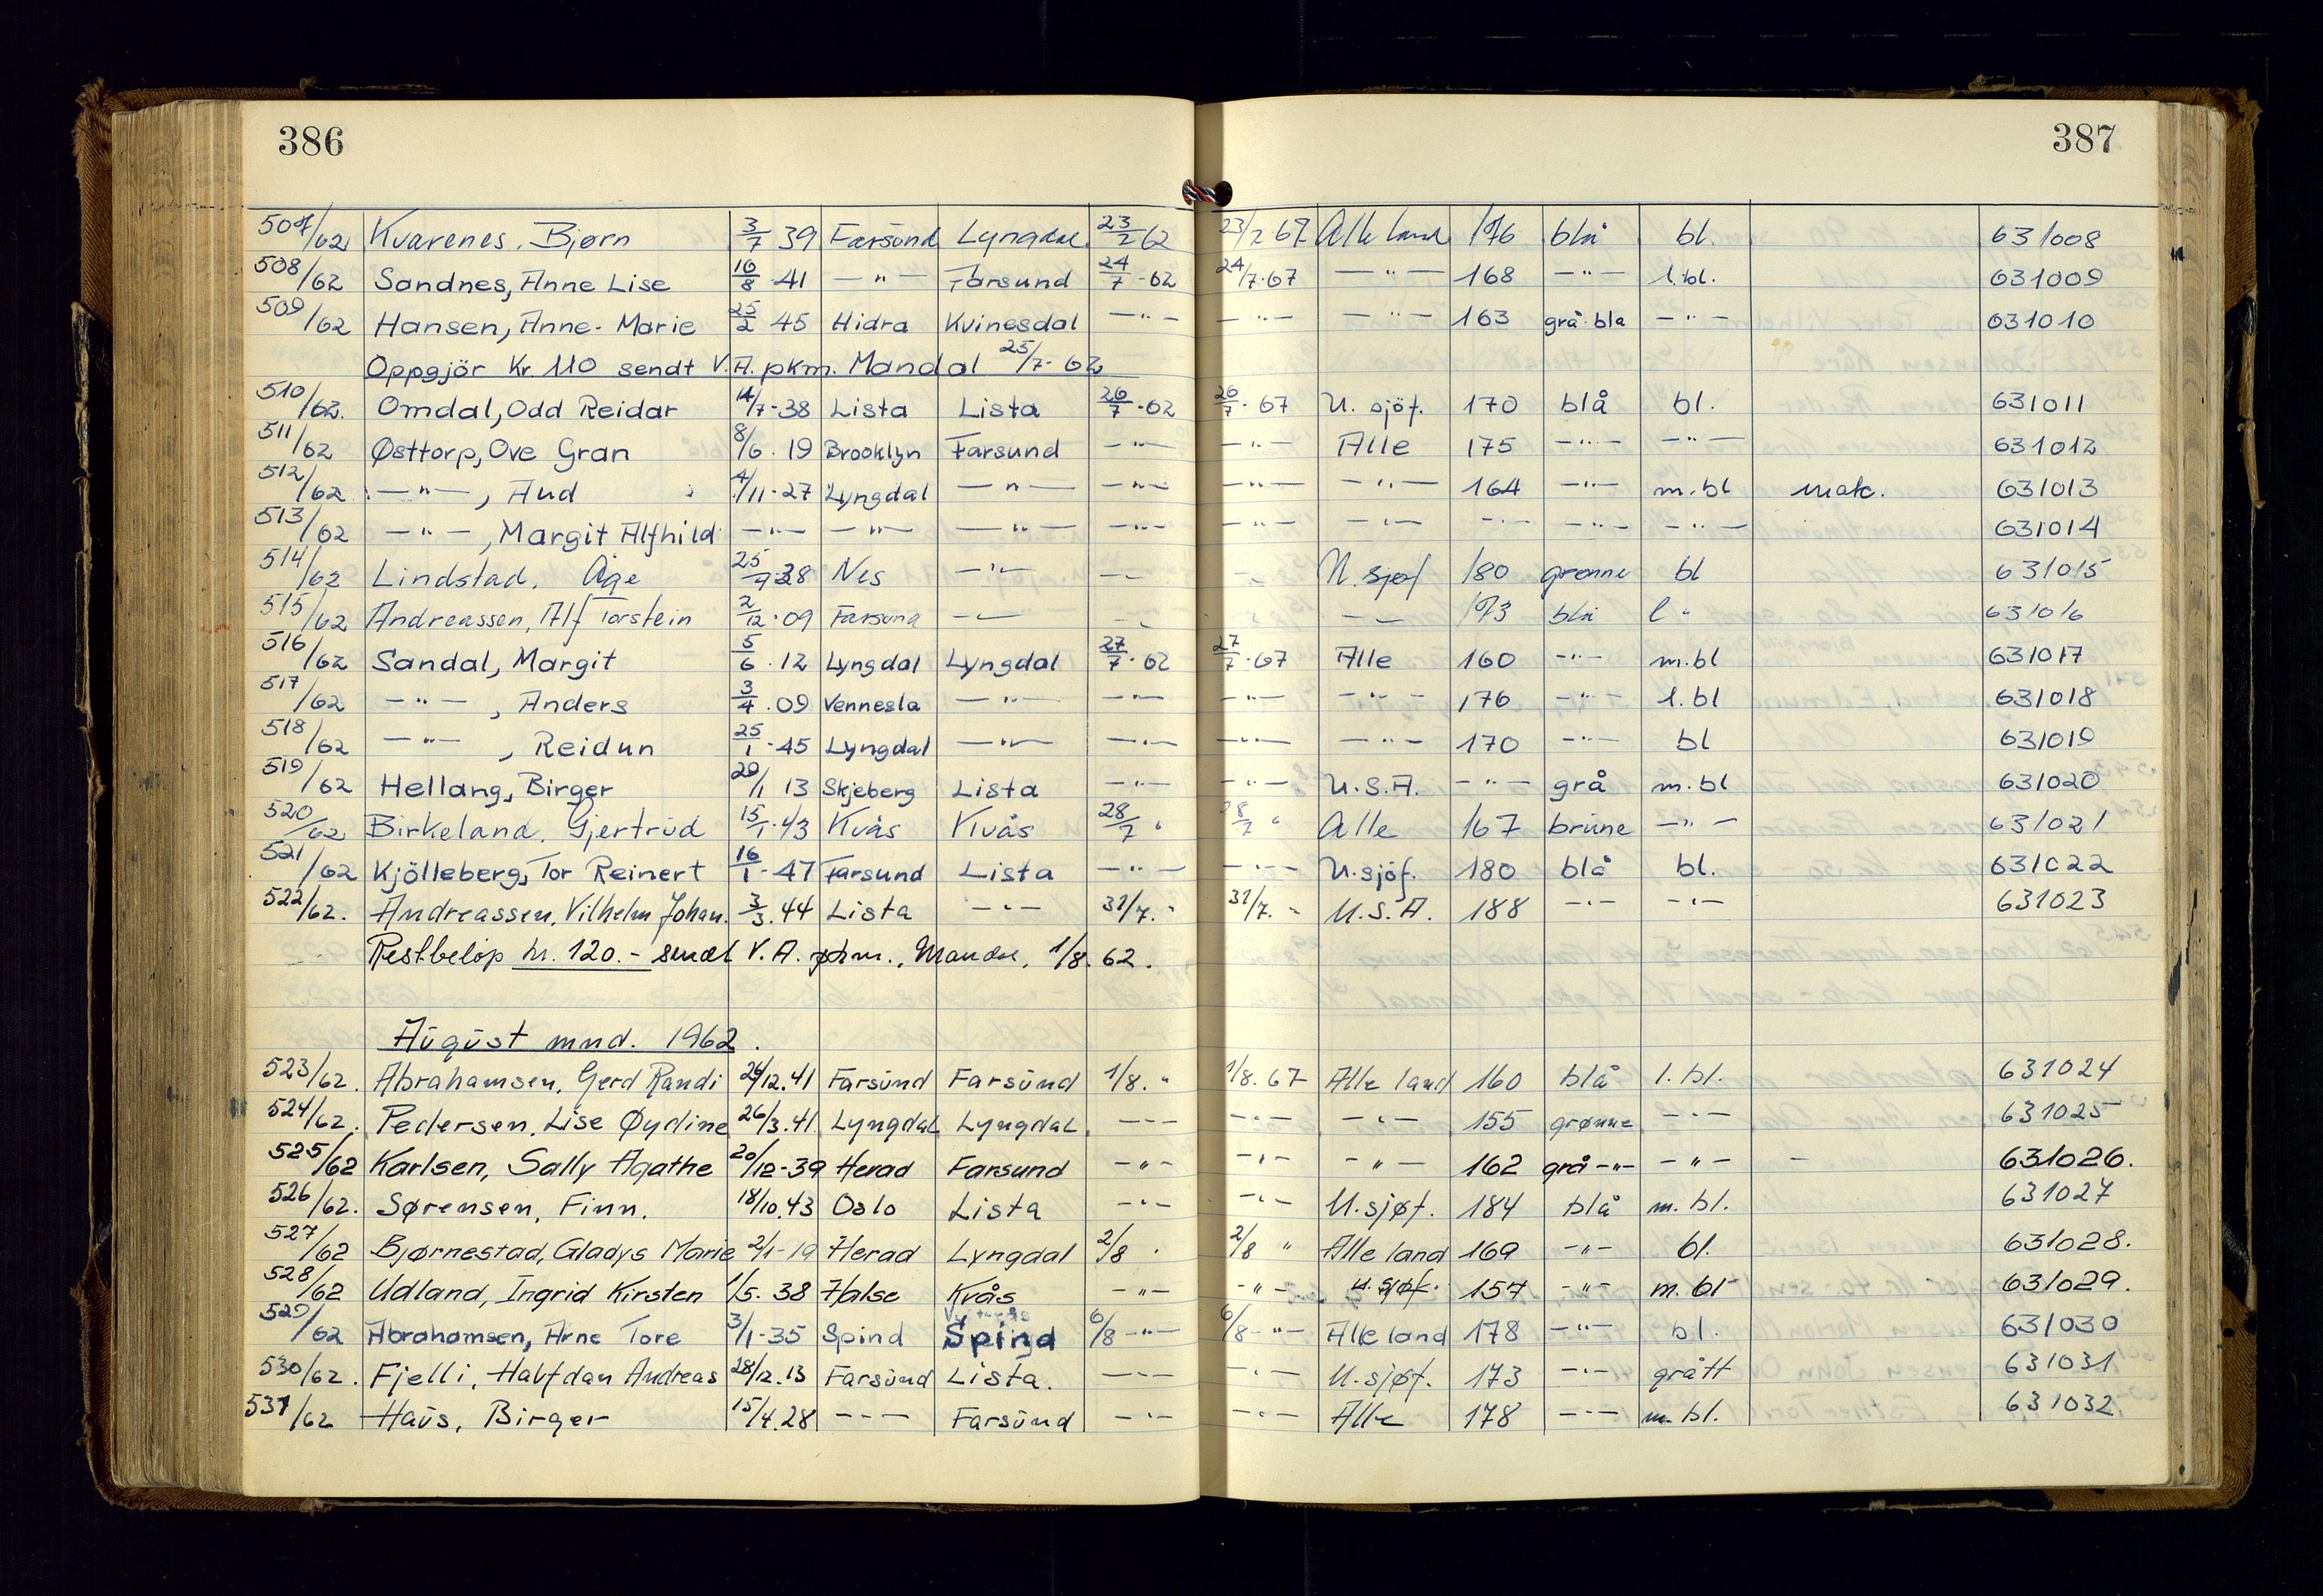 386
387
507/62 Kvarenes, Bjørn 3/7 39 Farsund Lyngdal 23/7 62 23/7 67 Alle land 176 blå bl. 631008
508/62 Sandnes, Anne Lise 16/8 41 —"— Farsund 24/7-62 24/7.67 —"— 168 —"— l.bl. 631009
509/62 Hansen, Anne-Marie 25/2 45 Hidra Kvinesdal —"— —"— —"— 163 grå-blå —"— 631010
Oppgjör Kr. 110 sendt V.A. pkm. Mandal 25/7-62
510/62. Omdal, Odd Reidar 14/7-38 Lista Lista 26/7-62 26/7-67 U. sjöf. 170 blå bl. 631011
511/62 Østtorp, Ove Gran 8/6. 19 Brooklyn Farsund —"— —"— Alle 175 —"— —"— 631012
512/62 —"—, Aud 4/11-27 Lyngdal —"— —"— —"— —"— 164 —"— m.bl 631013
513/62 —"—, Margit Alfhild —"— —"— —"— —"— —"— —"— —"— —"— —"— 631014
514/62 Lindstad, Åge 25/9 28 Nes —"— —"— —"— U. sjøf 180 grønne bl 631015
515/62 Andreassen, Alf Torstein 2/12.09 Farsund —"— —"— —"— —"— 173 blå l " 631016
516/62 Sandal, Margit 5/6.12 Lyngdal Lyngdal 27/7.62 27/7.67 Alle 160 —"— m.bl 631017
517/62 —"—, Anders 3/4.09 Vennesla —"— —"— —"— —"— 176 —"— l.bl 631018
518/62 —"—, Reidun 25/1-45 Lyngdal —"— —"— —"— —"— 170 —"— bl 631019
519/62 Hellang, Birger 29/1 13 Skjeberg Lista —"— —"— U.S.A. —"— grå m.bl 631020
520/62 Birkeland, Gjertrud 15/1.43 Kvås Kvås 28/7 " 28/7 " Alle 167 brune —"— 631021
521/62 Kjölleberg, Tor Reinert 16/1-47 Farsund Lista —"— —"— U.sjöf. 180 blå bl. 631022
522/62. Andreassen, Vilhelm Johan. 3/3.44 Lista —"— 31/7. " 31/7. " U.S.A. 188 —"— —"— 631023
Restbeløp kr. 120.- sendt V.A. pkm., Mandal, 1/8. 62.
August mnd. 1962.
523/62. Abrahamsen, Gerd Randi 24/12.41 Farsund Farsund 1/8. " 1/8. 67 Alle land 160 blå l. bl. 631024
524/62. Pedersen, Lise Øydine 26/3.41. Lyngdal Lyngdal —"— —"— —"— 155 grønne —"— 631025
525/62 Karlsen, Sally Agathe 20/12-39 Herad Farsund —"— —"— —"— 162 grå-"- —"— - 631026.
526/62. Sørensen, Finn. 18/10.43 Oslo Lista —"— —"— U.sjøf. 184 blå m. bl. 631027
527/62 Bjørnestad, Gladys Marie 2/1-19 Herad Lyngdal 2/8 " 2/8 " Alle land 169 —"— bl. 631028.
528/62 Udland, Ingrid Kirsten 1/5. 38 Halse Kvås —"— —"— u.sjøf. 157 —"— m.bl 631029.
529/62 Abrahamsen, Arne Tore 3/1-35 Spind Spind 6/8-"- 6/8-"- Alle land 178 —"— bl. 631030
530/62. Fjelli, Halfdan Andreas 28/12.13 Farsund Lista. —"— —"— U.sjøf. 173 —"— grått 631031
531/62 Haus, Birger 15/4.28 —"— Farsund —"— —"— Alle 178 —"— m. bl. 631032